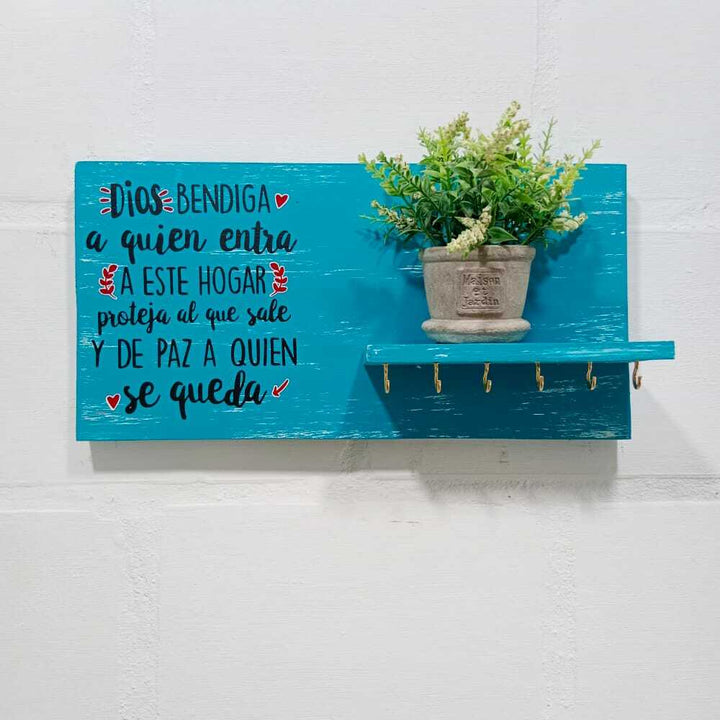 DIOS BENDIGA
a quien entra
A ESTE HOGAR
proteja al que sale
Y DE PAZ A QUIEN
se queda
Maison
et
Jardin